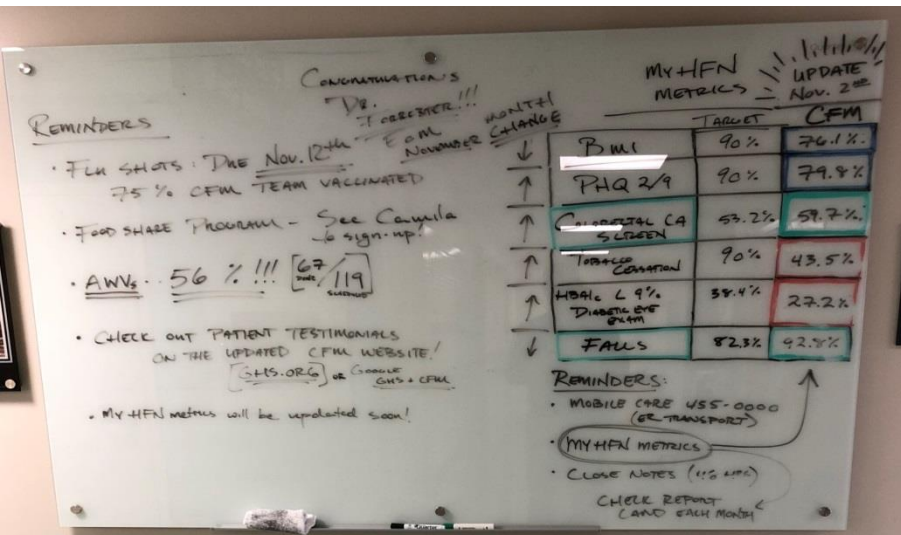 CONGRATULATIONS
DR.
FORRESTER!!!
EOM
NOVEMBER
REMINDERS
• FLU SHOTS: DUE NOV. 12th
75% CFM TEAM VACCINATED
• FOOD SHARE PROGRAM - See Camila
to sign-up!
• AWVs.. 56 %!!! [67 / 119]
• CHECK OUT PATIENT TESTIMONIALS
ON THE UPDATED CFM WEBSITE!
[GHS.ORG] or GOOGLE
GHS + CFM
• My HFN metrics will be updated soon!
MY HFN
METRICS
UPDATE
Nov. 2nd
MONTH
CHANGE
TARGET
CFM
↓ BMI 90% 76.1%
↑ PHQ 2/9 90% 79.8%
↑ COLORECTAL CA
SCREEN 53.2% 59.7%
↑ TOBACCO
CESSATION 90% 43.5%
↑ HBA1c L 9%
DIABETIC EYE
EXAM 38.4% 27.2%
↓ FALLS 82.3% 92.8%
REMINDERS:
• MOBILE CARE 455-0000
(ER TRANSPORT)
• MY HFN METRICS
• CLOSE NOTES
CHECK REPORT
CARD EACH MONTH